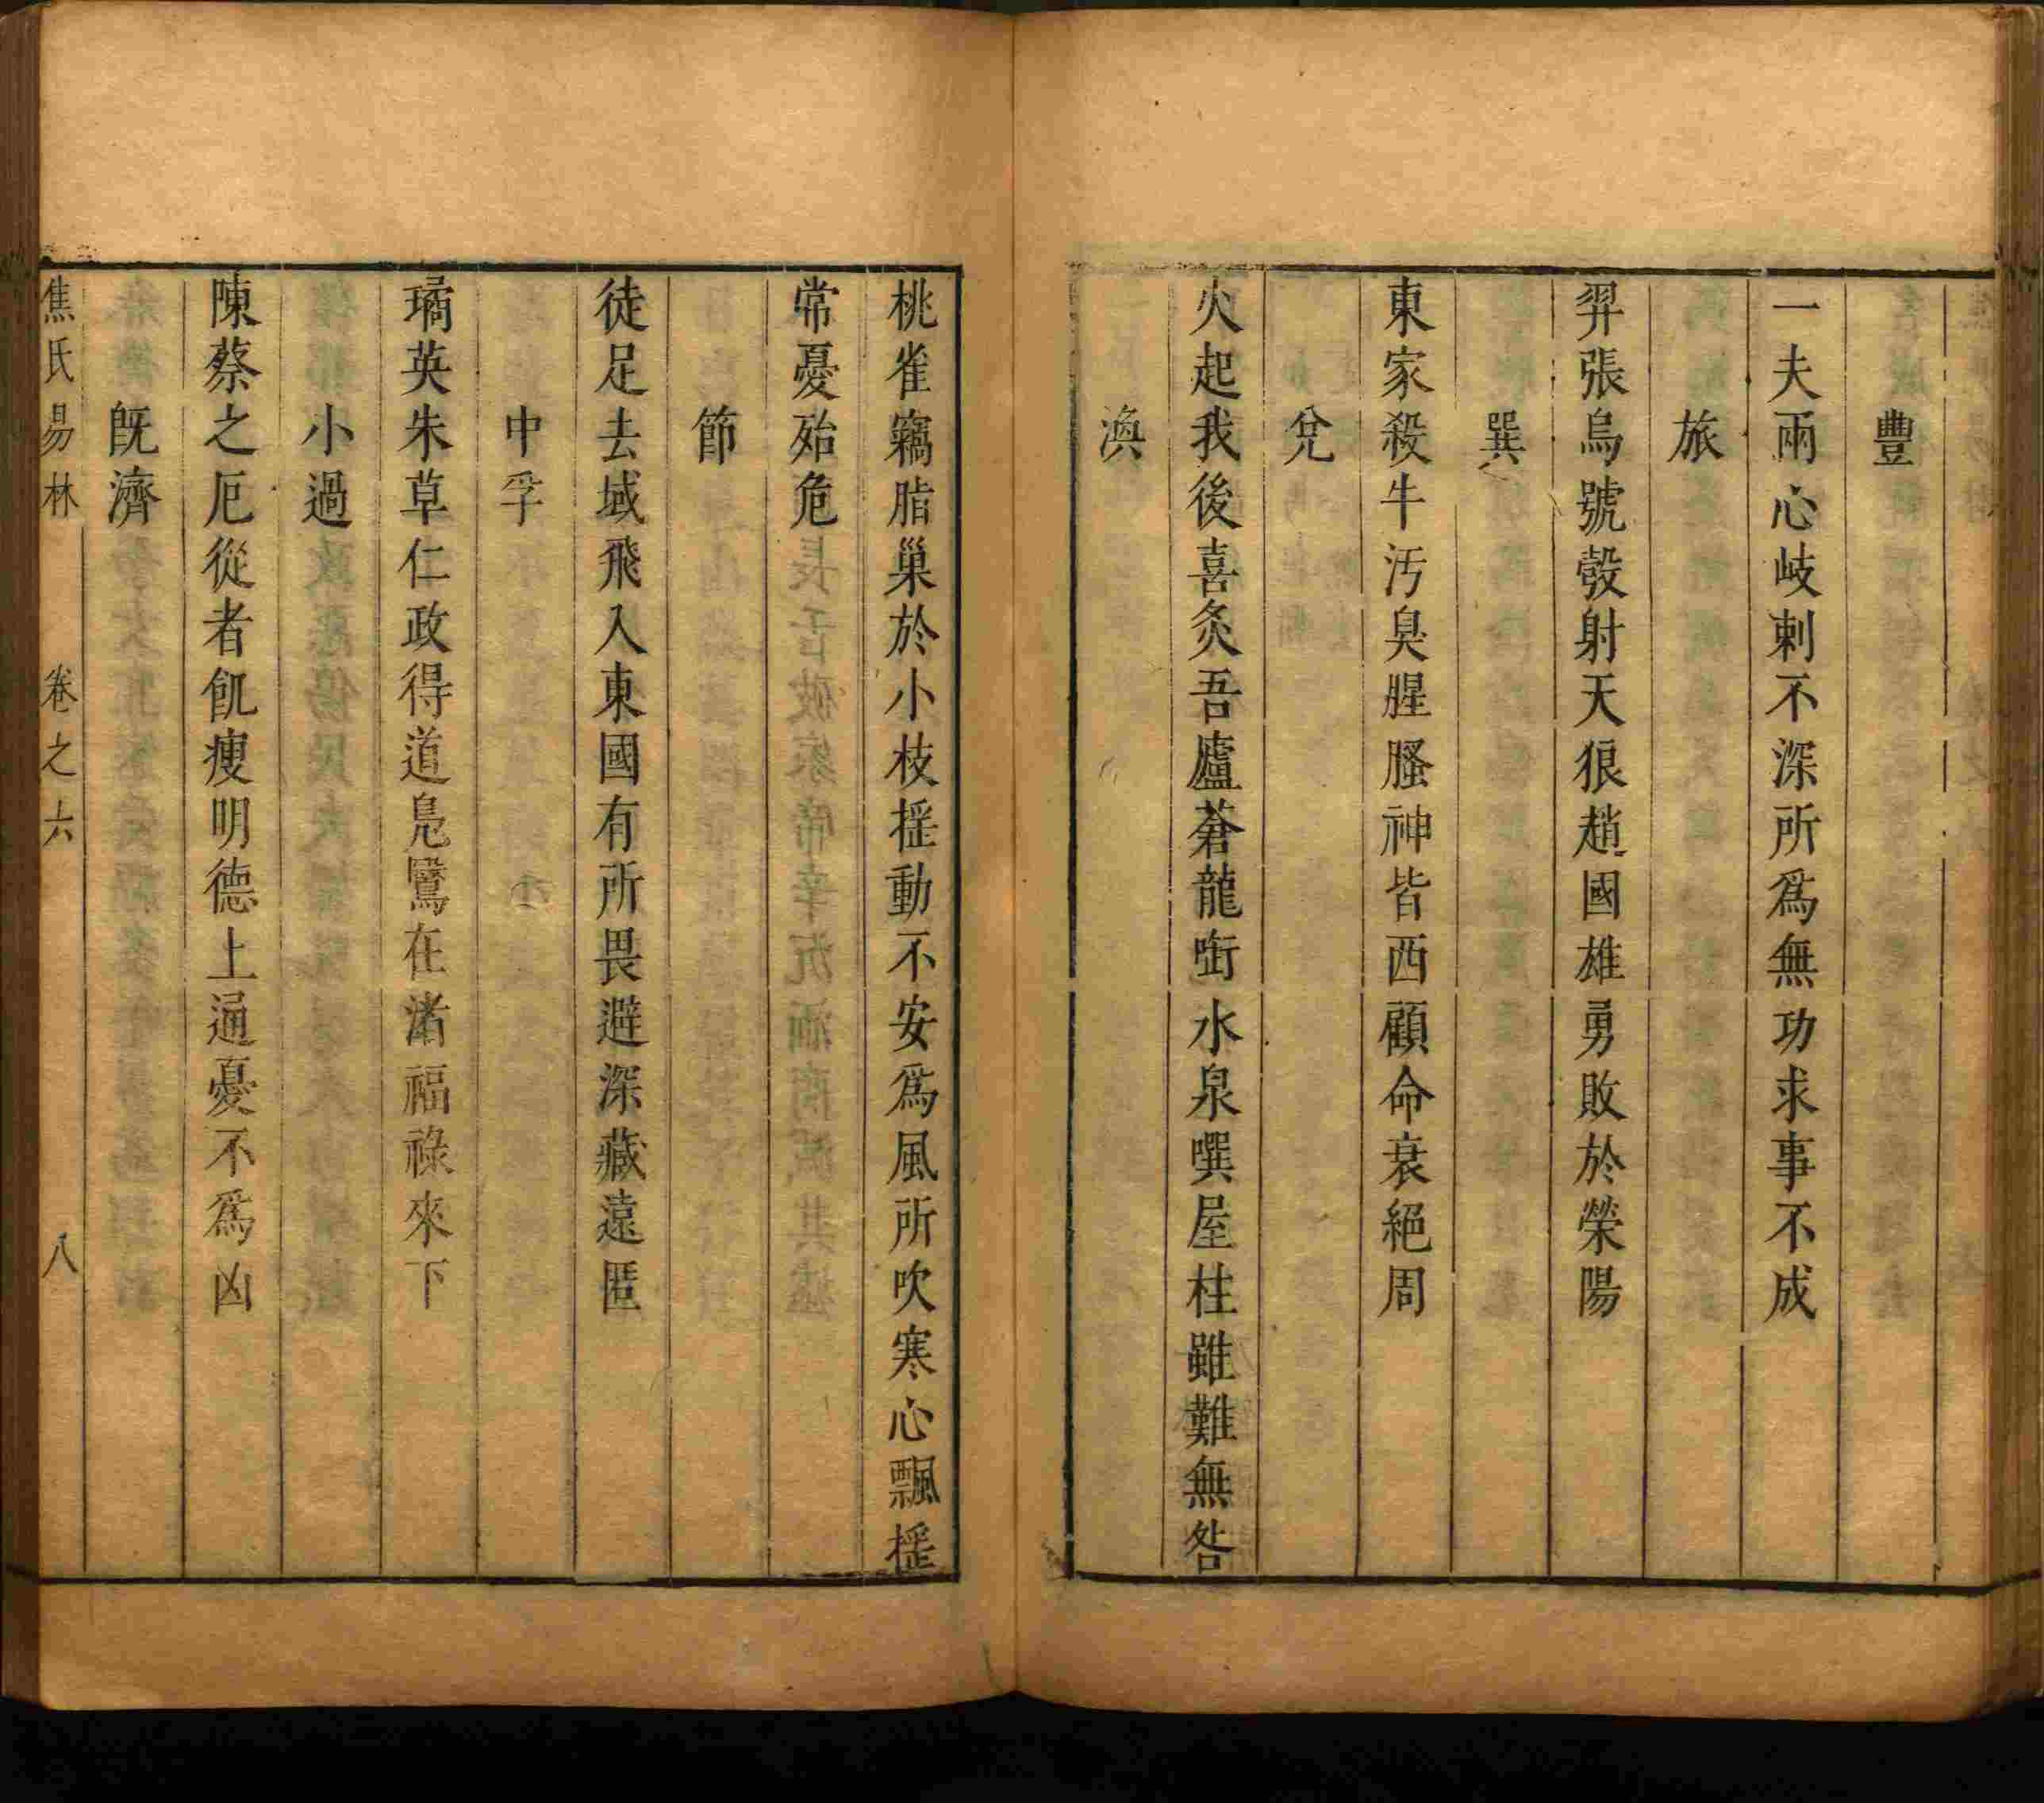 豐
一夫兩心岐刺不深所爲無功求事不成
旅
羿張烏號彀射天狼趙國雄勇敗於榮陽
巽
東家殺牛汚臭腥臊神皆西顧命衰絕周
兌
火起我後喜炙吾廬蒼龍啣水泉噀屋柱雖難無咎
渙
桃雀竊脂巢於小枝揺動不安爲風所吹寒心飄揺
常憂殆危
節
徒足去域飛入東國有所畏避深藏遠匿
中孚
璚英朱草仁政得道鳬鷖在渚福祿來下
小過
陳蔡之厄從者飢瘦明德上通憂不爲凶
旣濟
焦氏易林 卷之六 八